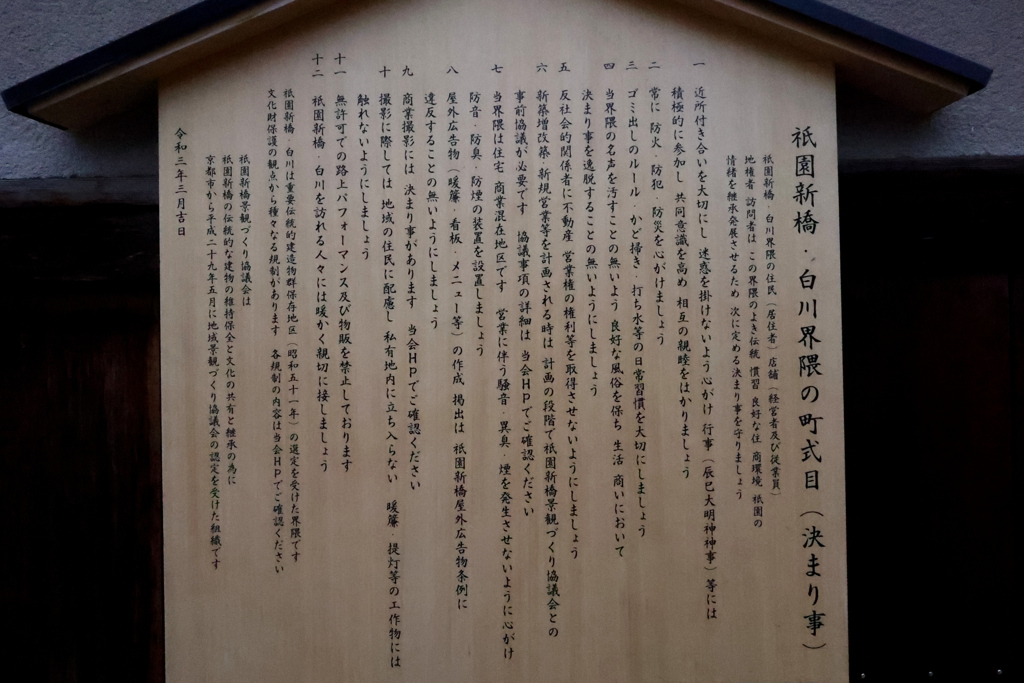 祇園新橋・白川界隈の町式目（決まり事）
祇園新橋・白川界隈の住民（居住者）店舗（経営者及び従業員）
地権者 訪問者は この界隈のよき伝統 慣習 良好な住 商環境 祇園の
情緒を継承発展させるため 次に定める決まり事を守りましょう
一 近所付き合いを大切にし 迷惑を掛けないよう心がけ 行事（辰巳大明神神事）等には
積極的に参加し 共同意識を高め 相互の親睦をはかりましょう
二 常に 防火・防犯・防災を心がけましょう
三 ゴミ出しのルール・かど掃き・打ち水等の日常習慣を大切にしましょう
四 当界隈の名声を汚すことの無いよう 良好な風俗を保ち 生活 商いにおいて
決まり事を逸脱することの無いようにしましょう
五 反社会的関係者に不動産 営業権の権利等を取得させないようにしましょう
六 新築増改築・新規営業等を計画される時は 計画の段階で祇園新橋景観づくり協議会との
事前協議が必要です 協議事項の詳細は 当会HPでご確認ください
七 当界隈は住宅 商業混在地区です 営業に伴う騒音・異臭・煙を発生させないように心がけ
防音・防臭・防煙の装置を設置しましょう
八 屋外広告物（暖簾・看板・メニュー等）の作成 掲出は 祇園新橋屋外広告物条例に
違反することの無いようにしましょう
九 商業撮影には 決まり事があります 当会HPでご確認ください
十 撮影に際しては 地域の住民に配慮し 私有地内に立ち入らない 暖簾・提灯等の工作物には
触れないようにしましょう
十一 無許可での路上パフォーマンス及び物販を禁止しております
十二 祇園新橋・白川を訪れる人々には暖かく親切に接しましょう
祇園新橋・白川は重要伝統的建造物群保存地区（昭和五十一年）の選定を受けた界隈です
文化財保護の観点から種々なる規制があります 各規制の内容は当会HPでご確認ください
祇園新橋景観づくり協議会は
祇園新橋の伝統的な建物の維持保全と文化の共有と継承の為に
京都市から平成二十九年五月に地域景観づくり協議会の認定を受けた組織です
令和三年三月吉日